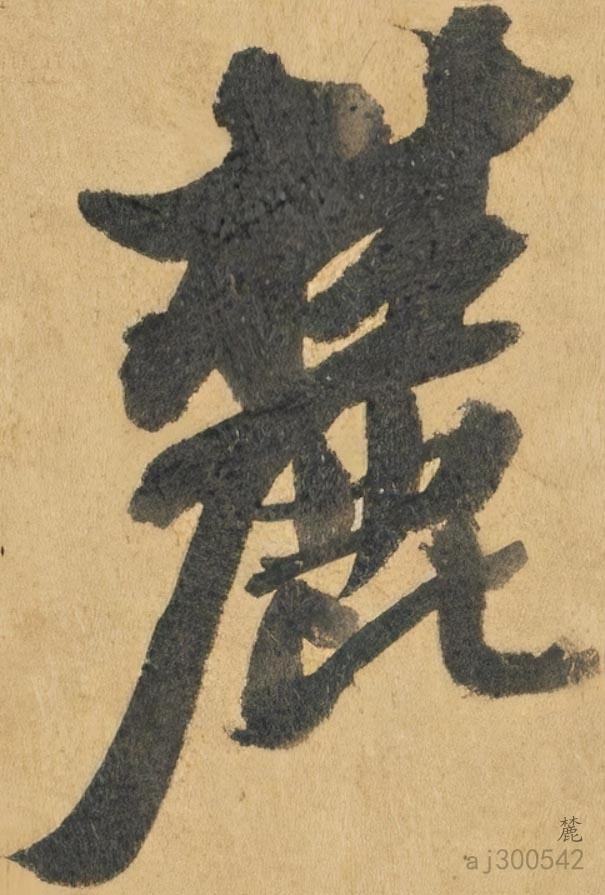 麓
麓
aj300542